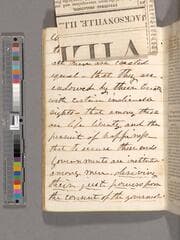 JACKSONVILLE, ILL
VILL
all men are created
equal — that they are
endowed by their Creator
with certain inalienable
rights — that among these
are life liberty and the
pursuit of happiness
that to secure these ends
Governments are instituted
among men, deriving
their just powers from
the consent of the governed